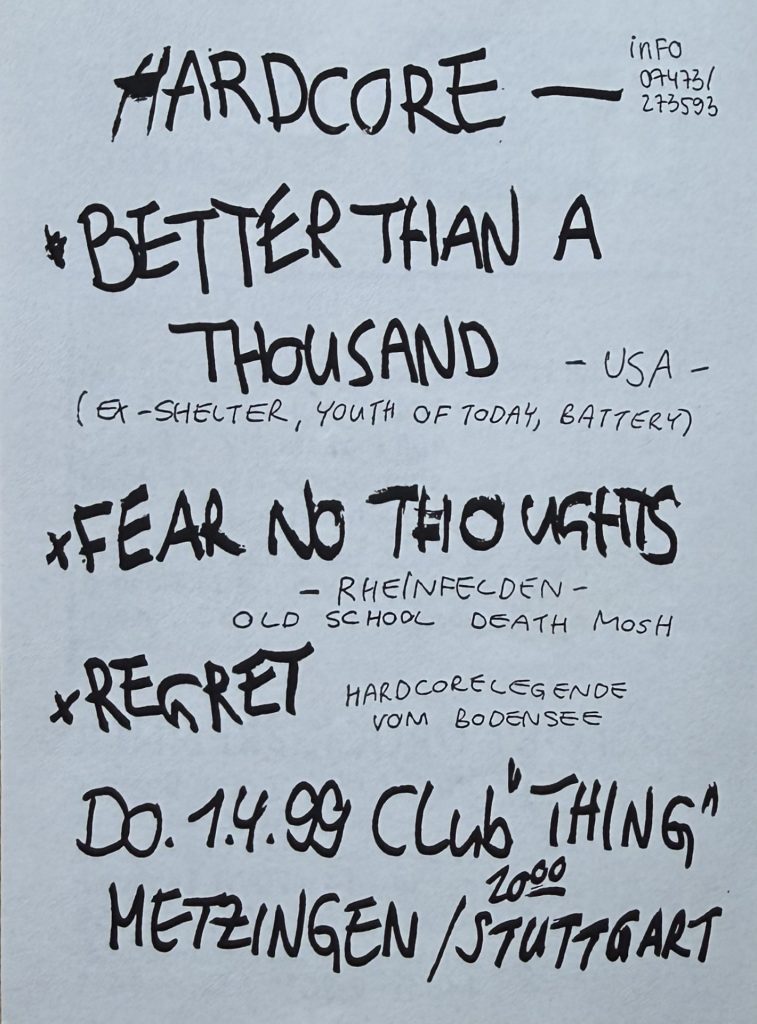 HARDCORE —
inFO
07473/
273593
* BETTER THAN A
THOUSAND - USA -
(EX-SHELTER, YOUTH OF TODAY, BATTERY)
x FEAR NO THOUGHTS
- RHEINFELDEN -
OLD SCHOOL DEATH MOSH
x REGRET HARDCORELEGENDE
VOM BODENSEE
DO. 1.4.99 CLub "THING"
2000
METZINGEN / STUTTGART